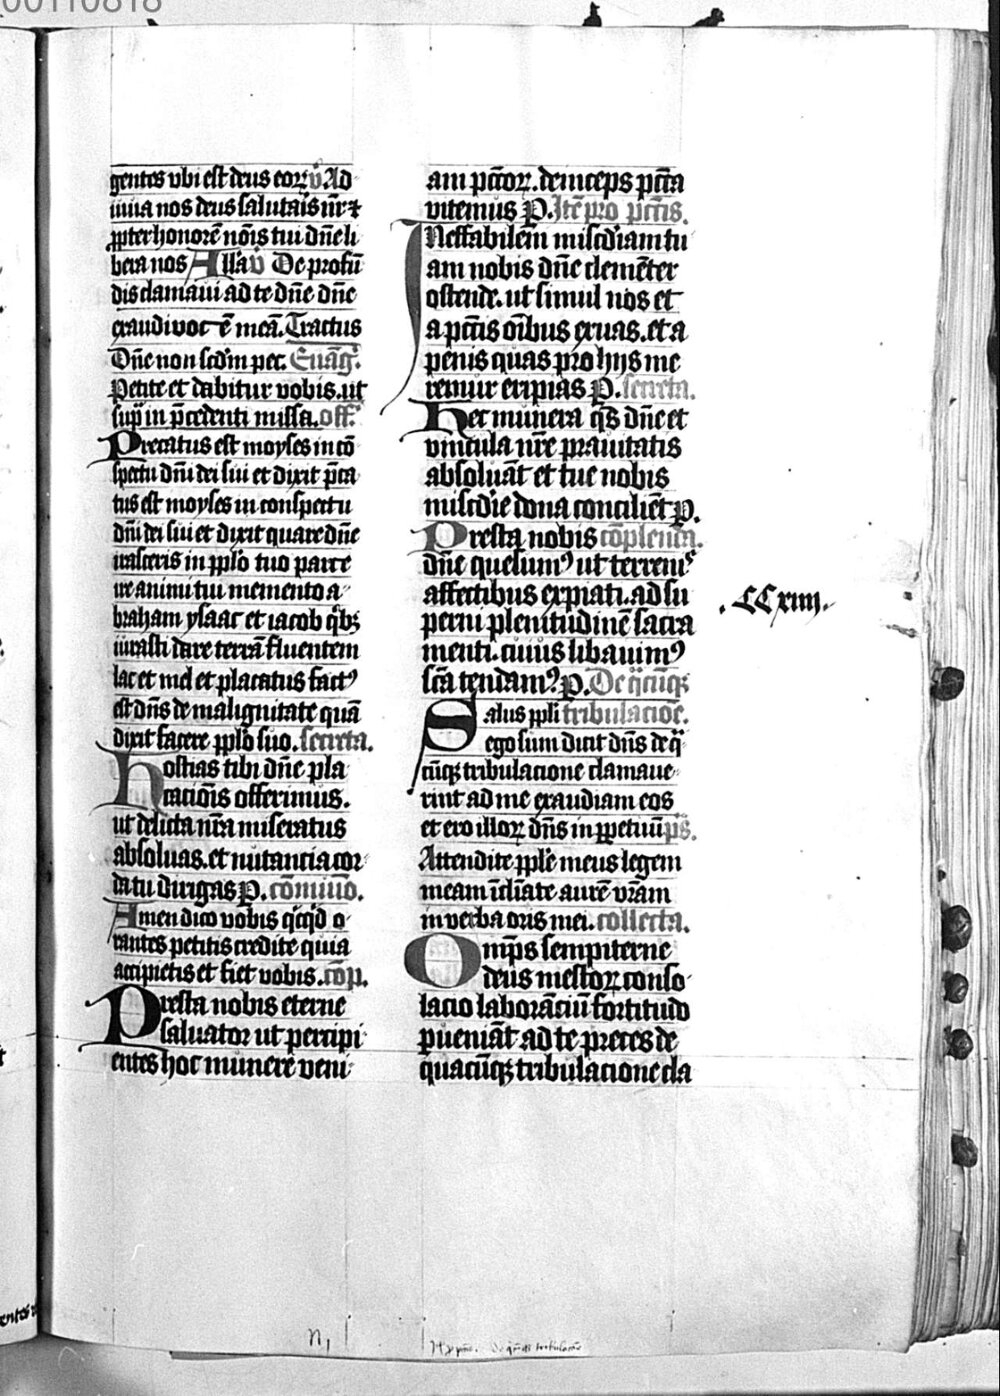 00110818
gentes vbi est deus eoꝝ v̄ Ad
iuua nos deus salutaīs nr̄ ⁊
ꝓpter honorē nōis tui dn̄e li
bera nos Allā v̄ De profū
dis clamaui ad te dn̄e dn̄e
exaudi voc̄ē meā. Tractus
Dn̄e non scd̄m pec. Euāḡ.
Petite et dabitur vobis. ut
sup̄ in p̄cedenti missa. off̄.
Precatus est moyses in cō
spectu dn̄i dei sui et dixit p̄ca
tus est moyses in conspectu
dn̄i dei sui et dixit quare dn̄e
irasceris in ppl̄o tuo parce
ire animi tui memento a
braham ysaac et iacob qͥbꝫ
iurasti dare terrā fluentem
lac et mel et placatus factꝰ
est dn̄s de malignitate quā
dixit facere ppl̄o suo. secreta.
Hostias tibi dn̄e pla
cacioīs offerimus.
ut delicta nr̄a miseratus
absoluas. et nutancia cor
da tu dirigas P. cōmuīo.
Amen dico vobis qͥcqͥd o
rantes petitis credite quia
accipietis et fiet vobis. cōp̄.
Presta nobis eterne
saluator ut percipi
entes hoc munere veni
am pc̄toꝝ. deinceps pc̄ta
vitemus P. Itē pro pc̄tis.
Ineffabilem mīscd̄iam tu
am nobis dn̄e clemēter
ostende. ut simul nos et
a pc̄tis oībus exuas. et a
penis quas pro hijs me
remur eripias P. secreta.
Hec munera qs̄ dn̄e et
vincula nr̄e prauitatis
absoluāt et tue nobis
mīscd̄ie dona conciliēt P.
Presta nobis cōplend̄a.
dn̄e quesumꝰ ut terreniˢ
affectibus expiati. ad su
perni plenitudinē sacra
menti. cuius libauimꝰ
sc̄a tendamꝰ. P. De qͣcūqꝫ
Salus ppl̄i tribulacioē.
ego sum dicit dn̄s de qͣ
cūqꝫ tribulacione clamaue
rint ad me exaudiam eos
et ero illoꝝ dn̄s in ꝑpetuū p̄s.
Attendite ppl̄e meus legem
meam īcliāte aurē vr̄am
in verba oris mei. collecta.
Omp̄s sempiterne
deus mestoꝝ conso
lacio laborāciū fortitudo
ꝑueniāt ad te preces de
quacūqꝫ tribulacione cla
.CCxiiij.